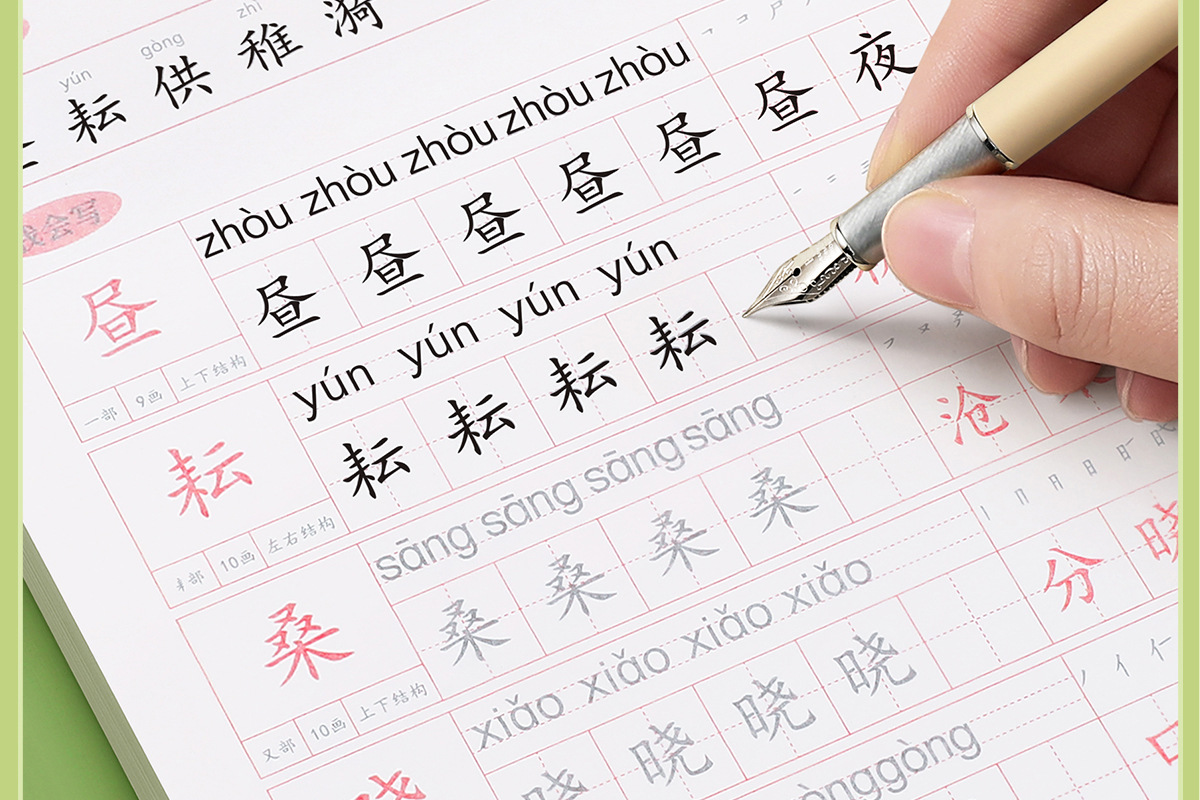 yún gòng zhì
耘 供 稚 漪
我会写
zhòu zhòu zhòu zhòu zhòu
昼 昼 昼 昼 昼 昼 夜
一部 9画 上下结构
yún yún yún yún
耘 耘 耘 耘 耘
耒部 10画 左右结构
sāng sāng sāng sāng
桑 桑 桑 桑 桑 沧
又部 10画 上下结构
xiǎo xiǎo xiǎo xiǎo
晓 晓 晓 晓 分 晓
gòng